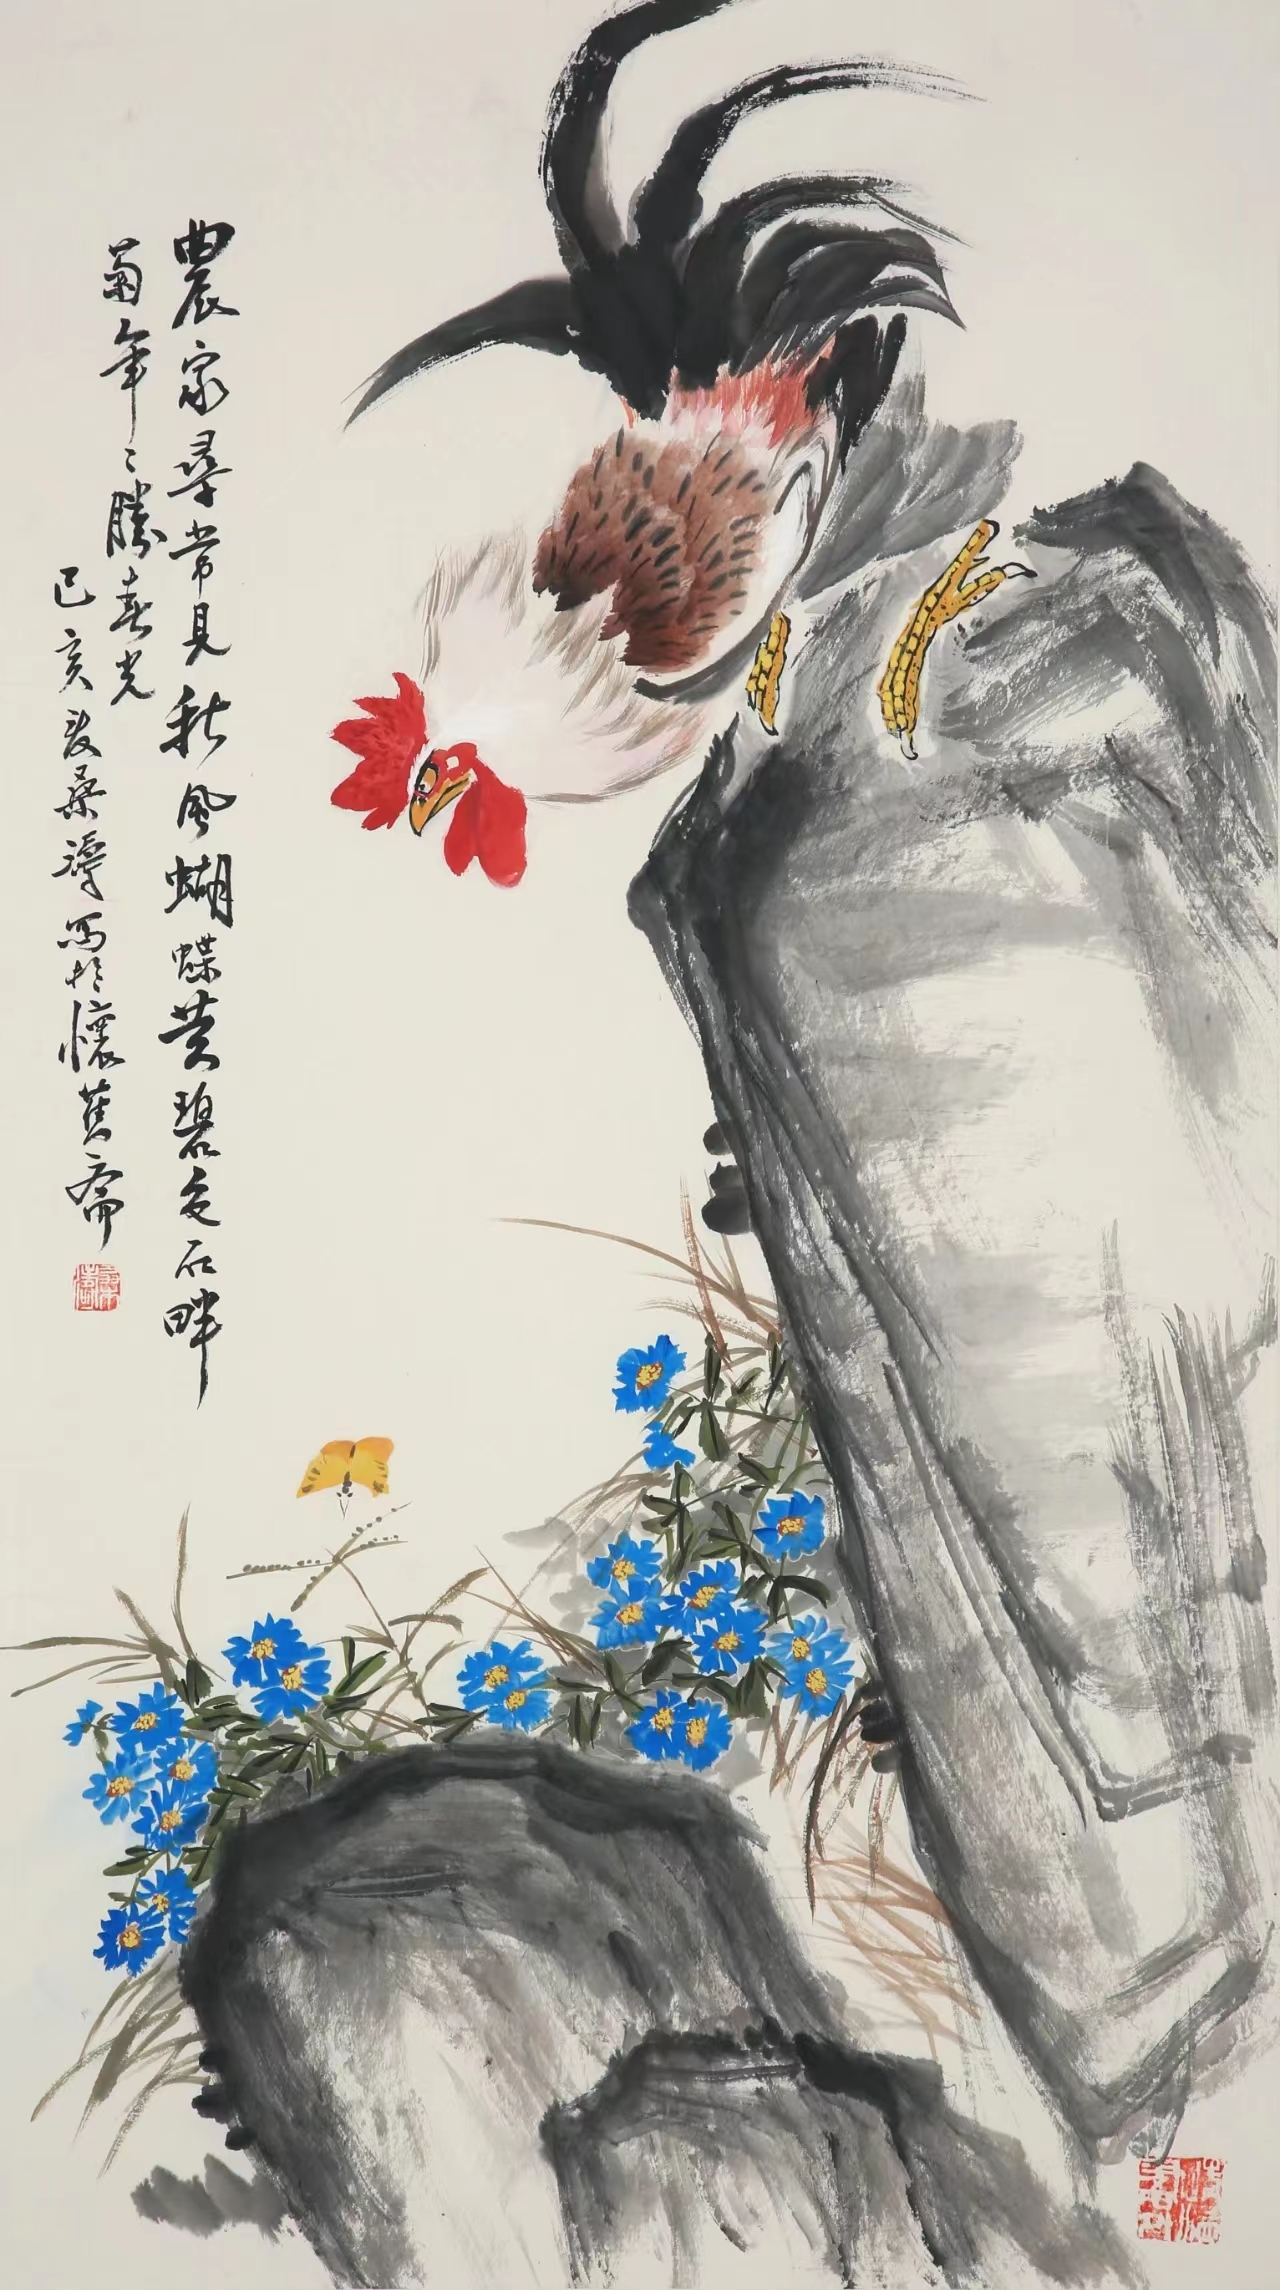 農家尋常見秋風蝴蝶黄碧色石畔
菊年〻勝春光
己亥夏桑濤寫於懷舊齋